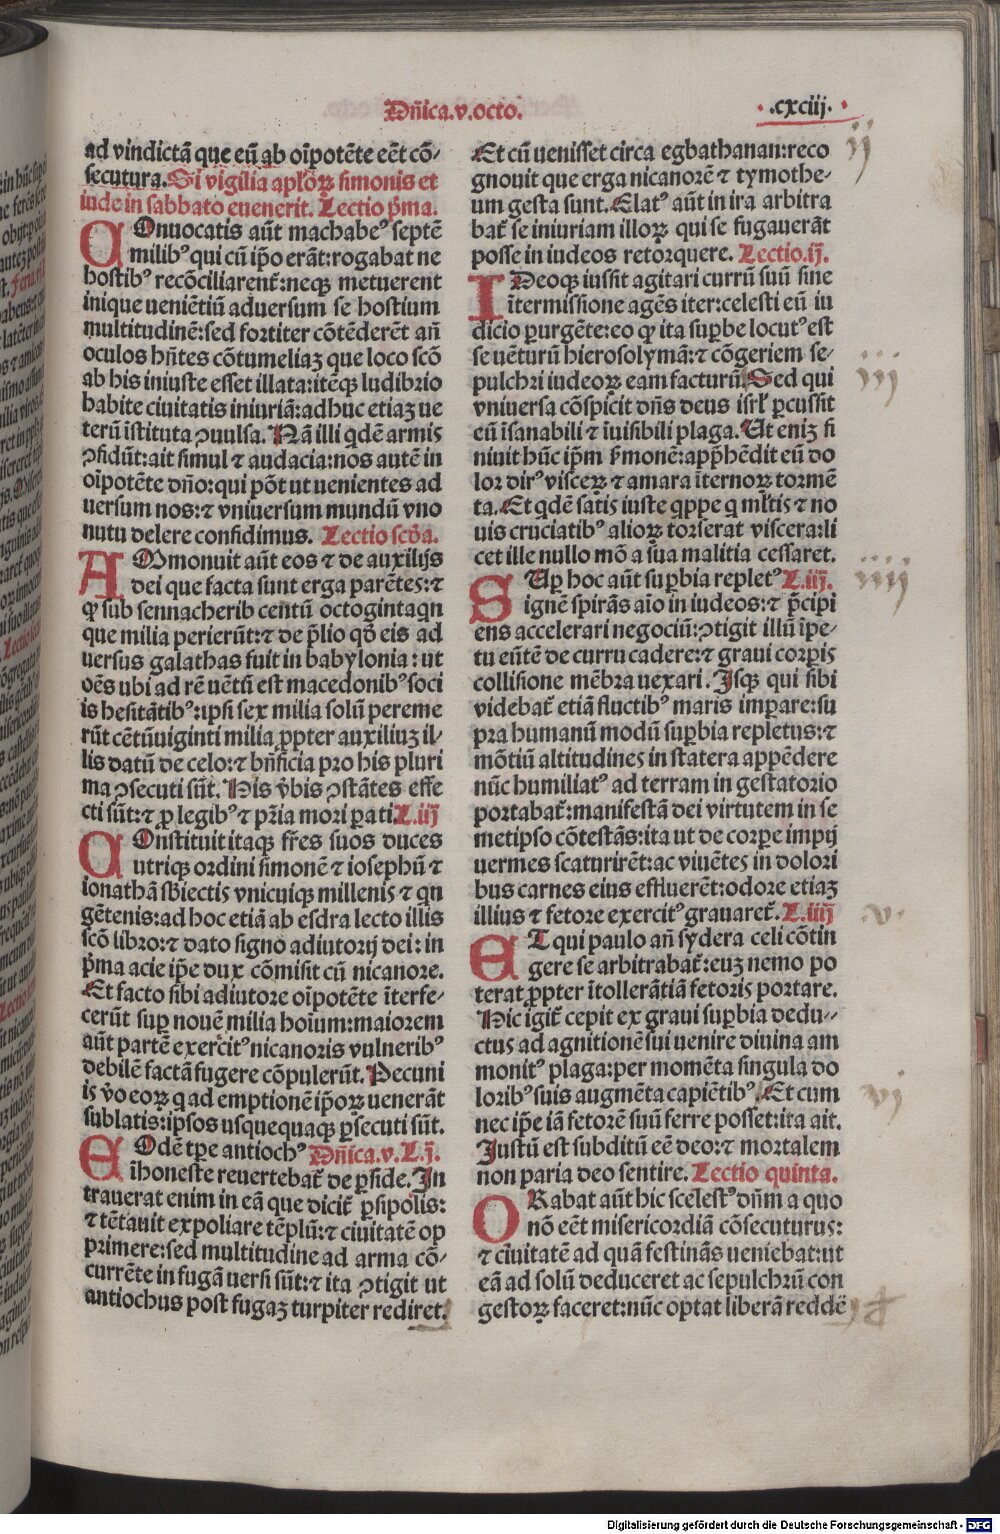 Dn̄ica.v.octo.
.cxciij.
ad vindictā que eū ab oīpotēte eēt cō⸗
secutura. Si vigilia apl'oꝝ simonis et
iude in sabbato euenerit. Lectio p̄ma.
COnuocatis aūt machabeꝰ septē
milibꝰ qui cū ip̄o erāt: rogabat ne
hostibꝰ recōciliarent᷑: neqꝫ metuerent
inique veniētiū aduersum se hostium
multitudinē: sed fortiter cōtēderēt añ
oculos hn̄tes cōtumeliaꝫ que loco scō
ab his iniuste esset illata: itēqꝫ ludibrio
habite ciuitatis iniuriā: adhuc etiaꝫ ue
terū īstituta ꝯuulsa. Nā illi qdē armis
ꝯfidūt: ait simul ⁊ audacia: nos autē in
oīpotēte dn̄o: qui pōt ut uenientes ad
uersum nos: ⁊ vniuersum mundū vno
nutu delere confidimus. Lectio scd̄a.
ADmonuit aūt eos ⁊ de auxilijs
dei que facta sunt erga parētes: ⁊
ꝙ sub sennacherib centū octogintaqn
que milia perierūt: ⁊ de p̄lio qd̄ eis ad
uersus galathas fuit in babylonia: ut
oēs ubi ad rē uētū est macedonibꝰ soci
is hesitātibꝰ: ipsi sex milia solū pereme
rūt cētūuiginti milia ꝓpter auxiliuꝫ il⸗
lis datū de celo: ⁊ bn̄ficia pro his pluri
ma ꝯsecuti sūt. His v̄bis ꝯstātes effe
cti sūt: ⁊ ꝓ legibꝰ ⁊ pr̄ia mori ꝑati. L.iij
COnstituit itaqꝫ fr̄es suos duces
utriqꝫ ordini simonē ⁊ iosephū ⁊
ionathā sb̄iectis vnicuiqꝫ millenis ⁊ qn
gētenis: ad hoc etiā ab esdra lecto illis
scō libro: ⁊ dato signo adiutorij dei: in
p̄ma acie ip̄e dux cōmisit cū nicanore.
Et facto sibi adiutore oīpotēte īterfe⸗
cerūt suꝑ nouē milia hoīum: maiorem
aūt partē exercitꝰ nicanoris vulneribꝰ
debilē factā fugere cōpulerūt. Pecuni
is v̄o eoꝝ q ad emptionē ip̄oꝝ uenerāt
sublatis: ipsos usquequaqꝫ ꝑsecuti sūt.
EOdē tꝑe antiochꝰ Dn̄ica.v.L.j.
īhoneste reuertebat᷑ de ꝑside. In
trauerat enim in eā que dicit᷑ ꝑsipolis:
⁊ tētauit expoliare tēplū: ⁊ ciuitatē op
primere: sed multitudine ad arma cō⸗
currēte in fugā uersi sūt: ⁊ ita ꝯtigit ut
antiochus post fugaꝫ turpiter rediret.
Et cū uenisset circa egbathanan: reco
gnouit que erga nicanorē ⁊ tymothe⸗
um gesta sunt. Elatꝰ aūt in ira arbitra
bat᷑ se iniuriam illoꝝ qui se fugauerāt
posse in iudeos retorquere. Lectio.ij.
IDeoqꝫ iussit agitari currū suū sine
ītermissione agēs iter: celesti eū iu
dicio ꝑurgēte: eo ꝙ ita suꝑbe locutꝰ est
se uēturū hierosolymā: ⁊ cōgeriem se⸗
pulchri iudeoꝝ eam facturū. Sed qui
vniuersa cōspicit dn̄s deus isrl' ꝑcussit
eū īsanabili ⁊ īuisibili plaga. Ut eniꝫ fi
niuit hūc ip̄m s̄monē: app̄hēdit eū do
lor dirꝰ visceꝝ ⁊ amara īternoꝝ tormē
ta. Et qdē satis iuste qppe q ml'tis ⁊ no
uis cruciatibꝰ alioꝝ torserat viscera: li
cet ille nullo mō a sua malitia cessaret.
SUꝑ hoc aūt suꝑbia repletꝰ L.iij.
ignē spirās aīo in iudeos: ⁊ p̄cipi
ens accelerari negociū: ꝯtigit illū īpe⸗
tu eūtē de curru cadere: ⁊ graui corꝑis
collisione mēbra uexari. Isqꝫ qui sibi
videbat᷑ etiā fluctibꝰ maris imꝑare: su
pra humanū modū suꝑbia repletus: ⁊
mōtiū altitudines in statera appēdere
nūc humiliatꝰ ad terram in gestatorio
portabat᷑: manifestā dei virtutem in se
metipso cōtestās: ita ut de corꝑe impij
uermes scaturirēt: ac viuētes in dolori
bus carnes eius effluerēt: odore etiaꝫ
illius ⁊ fetore exercitꝰ grauaret᷑. L.iiij
ET qui paulo añ sydera celi cōtin
gere se arbitrabat᷑: euꝫ nemo po
terat ꝓpter ītollerātiā fetoris portare.
Hic igit᷑ cepit ex graui suꝑbia dedu⸗
ctus ad agnitionē sui uenire diuina am
monitꝰ plaga: per momēta singula do
loribꝰ suis augmēta capiētibꝰ. Et cum
nec ip̄e iā fetorē suū ferre posset: ita ait.
Justū est subditū eē deo: ⁊ mortalem
non paria deo sentire. Lectio quinta.
ORabat aūt hic scelestꝰ dn̄m a quo
nō eēt misericordiā cōsecuturus:
⁊ ciuitatē ad quā festinās ueniebat: ut
eā ad solū deduceret ac sepulchrū con
gestoꝝ faceret: nūc optat liberā reddē
ij
iij
iiij
.v.
vj
Digitalisierung gefördert durch die Deutsche Forschungsgemeinschaft - DFG